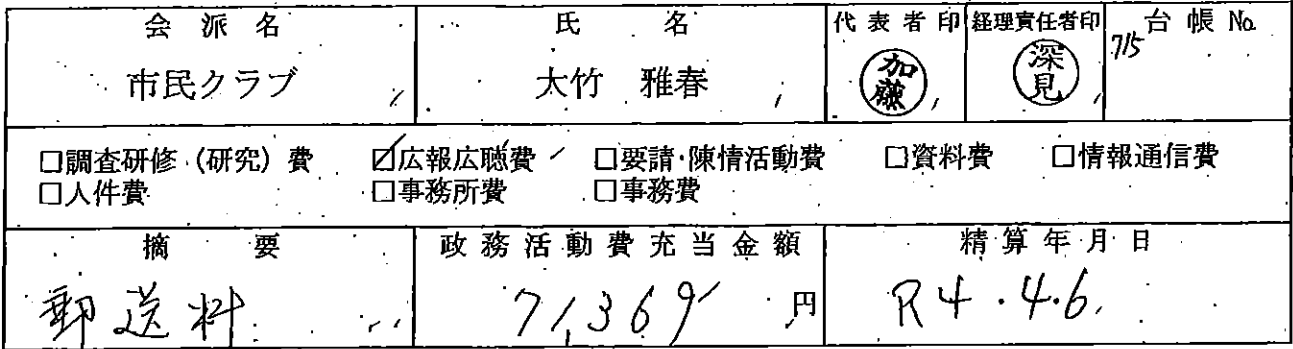 会派名 氏名 代表者印 経理責任者印 台帳No.
市民クラブ 大竹 雅春 加藤 深見 715
□調査研修(研究)費 ☑広報広聴費 □要請・陳情活動費 □資料費 □情報通信費
□人件費 □事務所費 □事務費
摘要 政務活動費充当金額 精算年月日
郵送料 71,369円 R4.4.6